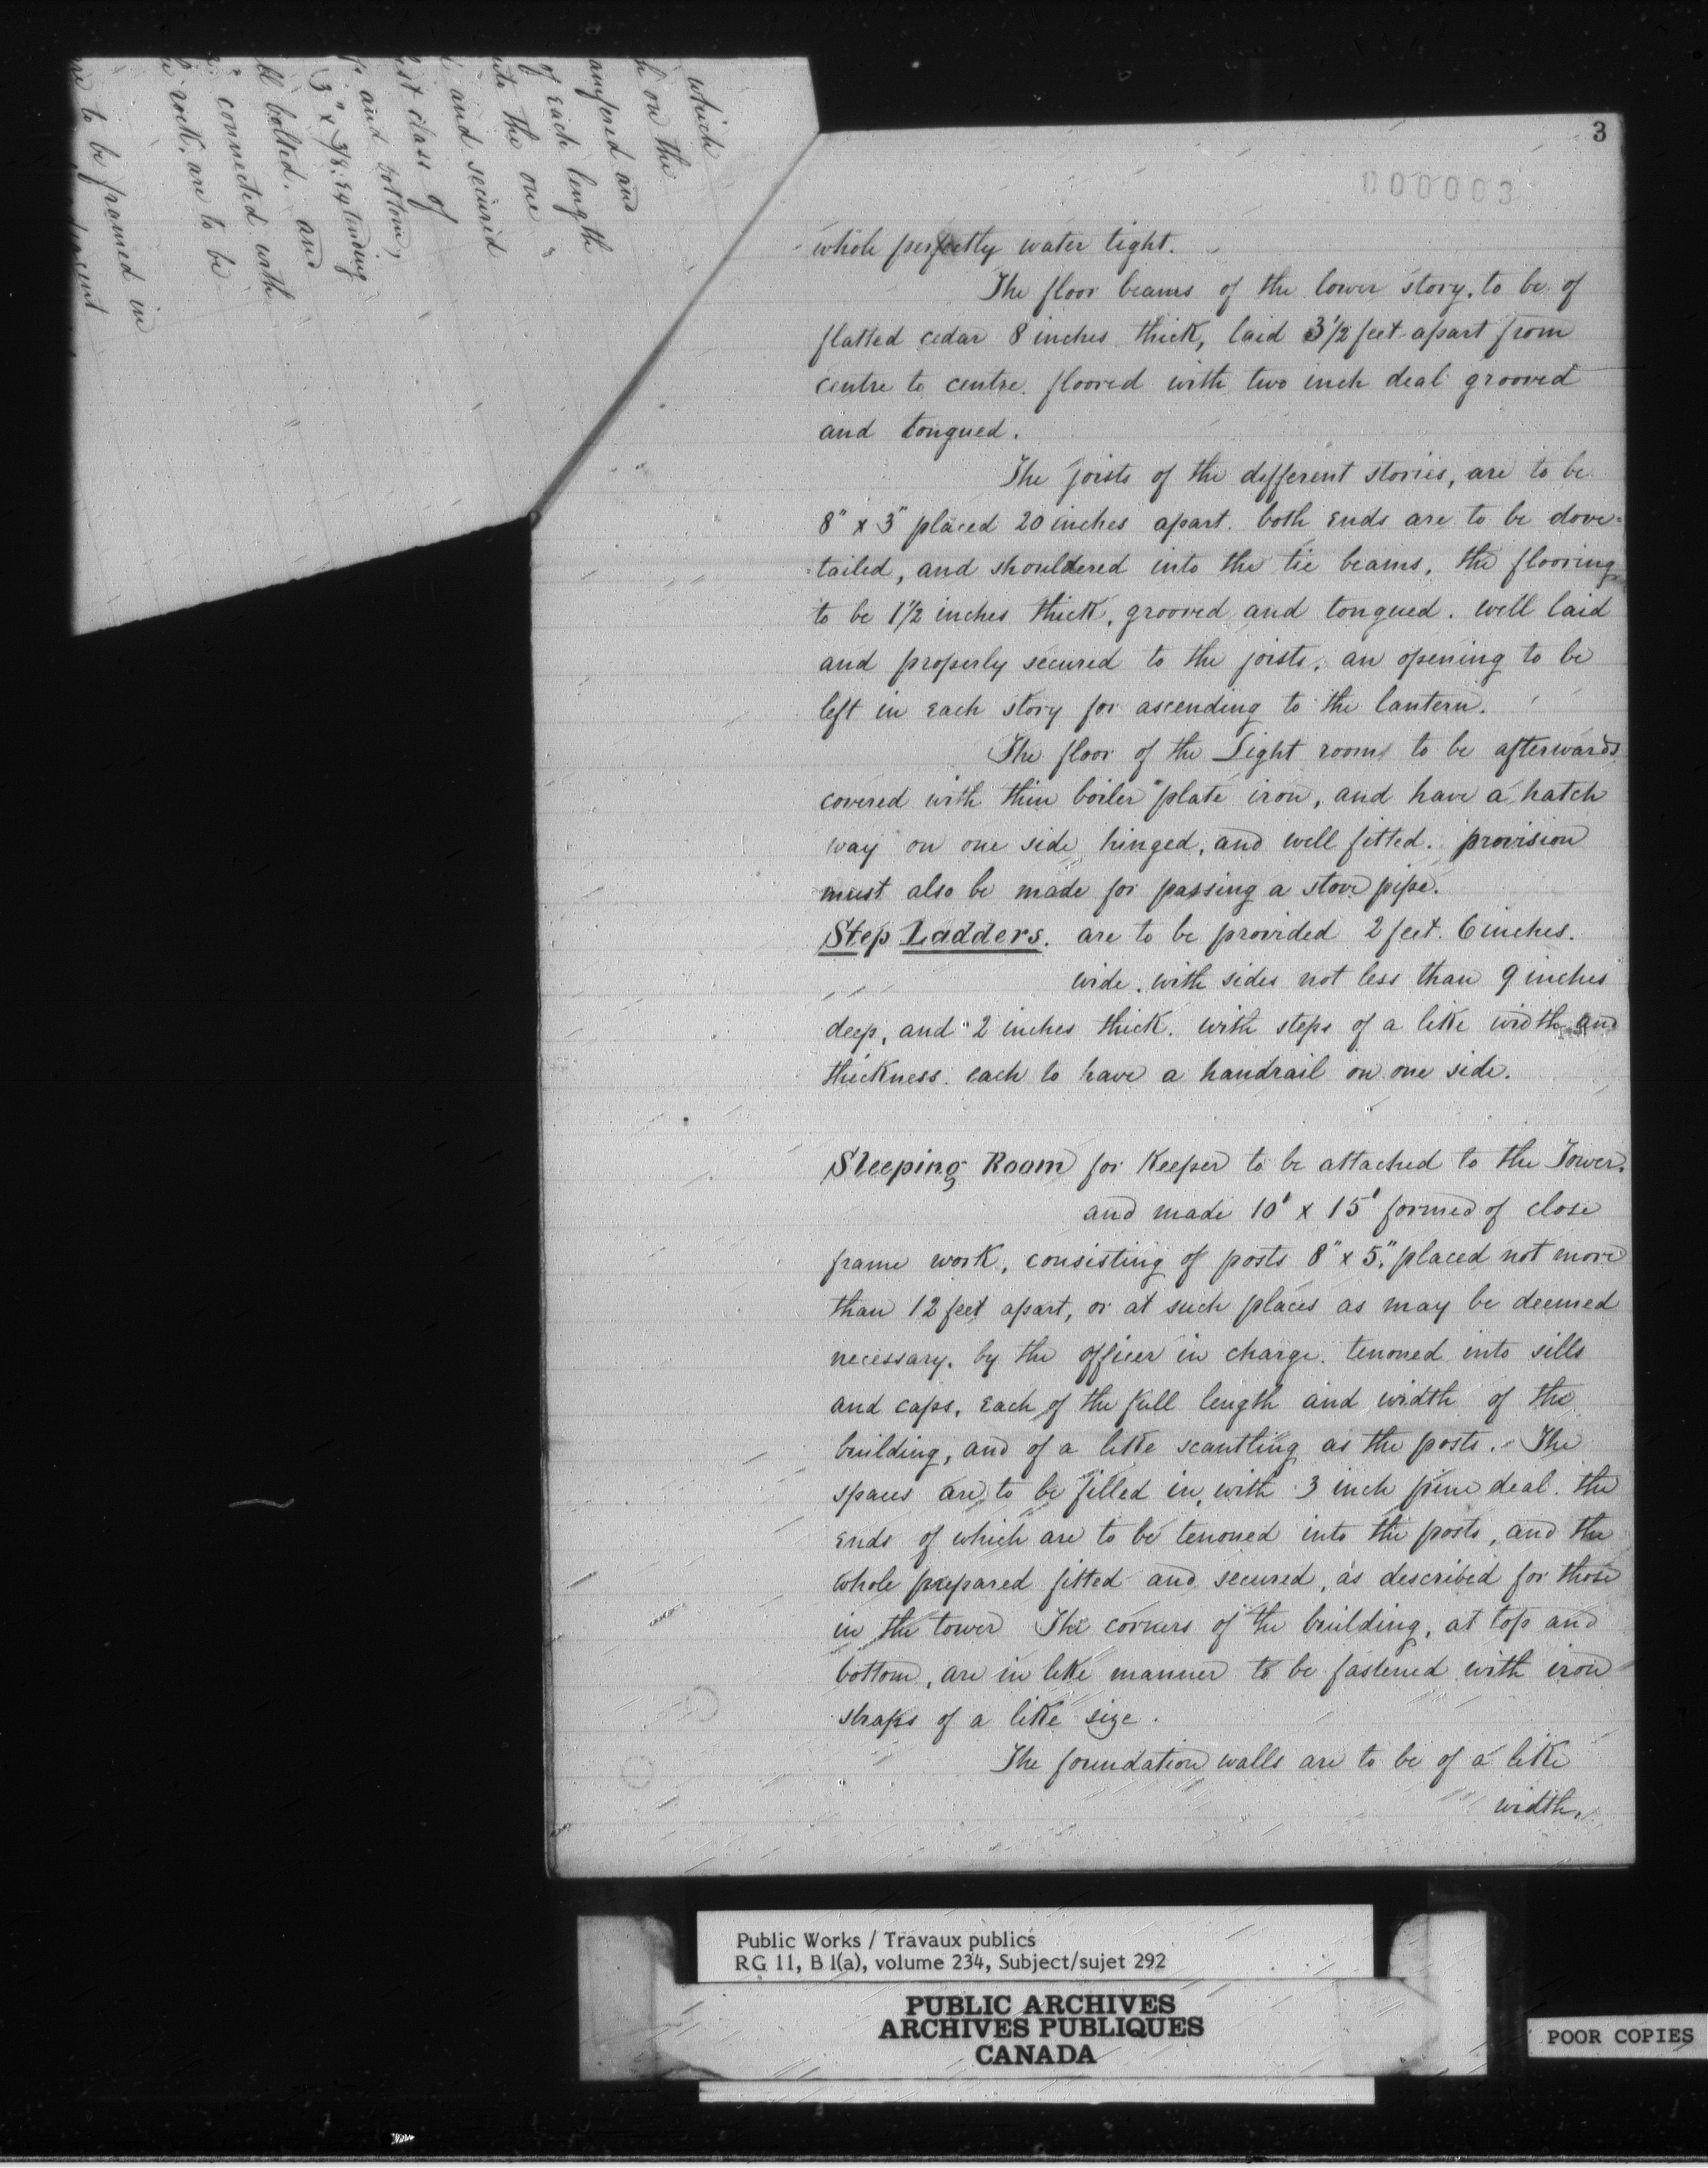 3
000003
whole perfectly water tight.
The floor beams of the lower story, to be of
flatted cedar 8 inches thick, laid 3 1/2 feet apart from
centre to centre. floored with two inch deal grooved
and tongued.
The joists of the different stories, are to be
8" x 3" placed 20 inches apart. both ends are to be dove=
=tailed, and shouldered into the tie beams, the flooring
to be 1 1/2 inches thick, grooved and tongued. well laid
and properly secured to the joists, an opening to be
left in each story for ascending to the lantern.
The floor of the Light room to be afterwards
covered with thin boiler plate iron, and have a hatch
way on one side hinged, and well fitted. provision
must also be made for passing a stove pipe.
Step Ladders. are to be provided 2 feet. 6 inches.
wide. with sides not less than 9 inches
deep, and 2 inches thick. with steps of a like width and
thickness. each to have a handrail on one side.
Sleeping Room for Keeper to be attached to the Tower.
and made 10' x 15' formed of close
frame work, consisting of posts 8" x 5", placed not more
than 12 feet apart, or at such places as may be deemed
necessary. by the officer in charge. tenoned into sills
and caps, each of the full length and width of the
building, and of a like scantling as the posts. The
spaces are to be filled in, with 3 inch pine deal. the
ends of which are to be tenoned into the posts, and the
whole prepared fitted and secured, as described for those
in the tower The corners of the building, at top and
bottom, are in like manner to be fastened with iron
straps of a like size.
The foundation walls are to be of a like
width,
which
on the
and
of each length
the one
and secured
class of
and bottom,
3" x 3/8" extending
bolted. and
connected with
rock, are to be
to be framed in
Public Works / Travaux publics
RG 11, B 1(a), volume 234, Subject/sujet 292
PUBLIC ARCHIVES
ARCHIVES PUBLIQUES
CANADA
POOR COPIES